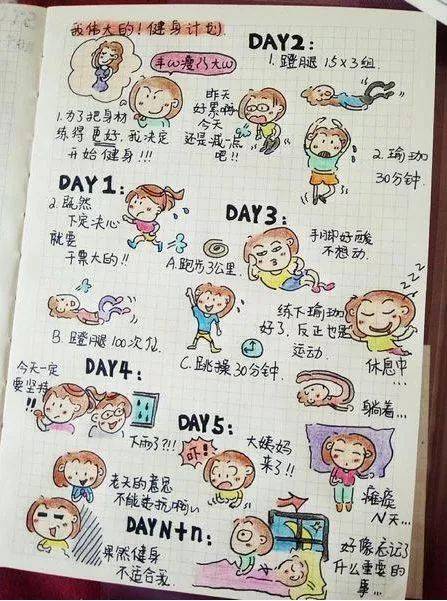 我伟大的!健身计划
丰ω瘦ㄋ大ω
1.为了把身材
练得更好,我决定
开始健身!!!
DAY1:
2.既然
下定决心
就要
干票大的!!
A.跑步3公里.
B.蹬腿100次.
C.跳操30分钟.
DAY2:
1.蹬腿15×3组.
昨天
好累啊
今天
还是减一点
吧!!
2.瑜珈
30分钟.
DAY3:
手脚好酸
不想动.
练下瑜珈
好了.反正也是
运动.
zzz
休息中...
躺着...
DAY4:
今天一定
要坚持
!!
下雨了?!!
老天的意思
不能违抗啊
DAY5:
吓!
大姨妈
来了!!
瘫痪
N天...
DAYN+n:
果然健身
不适合我.
好像忘记了
什么重要的
事...